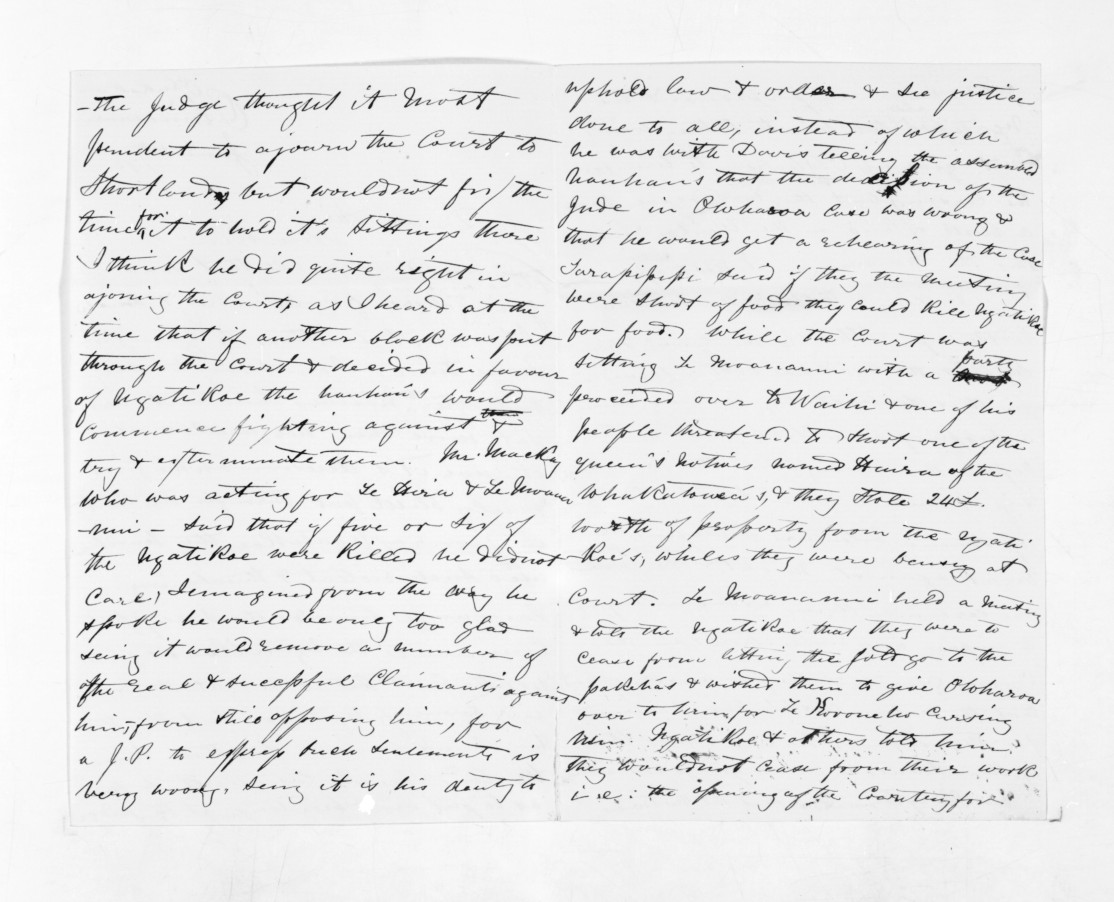 - The Judge thought it most
prudent to ajourn the Court to
Shortland, but wouldnot fix the
time for it to hold it's sittings there
I think he did quite right in
ajoning the Court, as I heard at the
time that if another block was put
through the Court & decided in favour
of NgatiKoe the hauhau's would
commence fighting against &
try & exterminate them. Mr. Mackay
who was acting for Te Hira & Te Moana
-nui - said that if five or six of
the NgatiKoe were Killed he didnot
Care, I emagined from the way he
spoke he would be only too glad
seing it would remove a number of
the real & sucessful Claimants against
him, from still opposing him, for
a J.P. to express such sentements is
very wrong, seing it is his deuty to
uphold law & order & see justice
done to all, instead of which
he was with Davis telling the assembled
hauhau's that the decision of the
Jude in Owharoa Case was wrong &
that he would get a rehearing of the Case
Tarapipipi said if they the meeting
were short of food they could Kill NgatiKoe
for food. While the Court was
sitting Te Moananui with a party
proceeded over to Waihi & one of his
people threatened to shoot one of the
queen's natives named Huira of the
Whakatowea's, & they stole 24£.
worth of property from the Ngati
Koe's, whiles they were beusey at
Court. Te Moananui held a meeting
& told the NgatiKoe that they were to
cease from letting the gold go to the
pakehas & wished them to give Owharoa
over to him, for Te Koroneho Cursing
him. NgatiKoe & others told him
they wouldnot cease from their work
i.e: the opening of the Country for